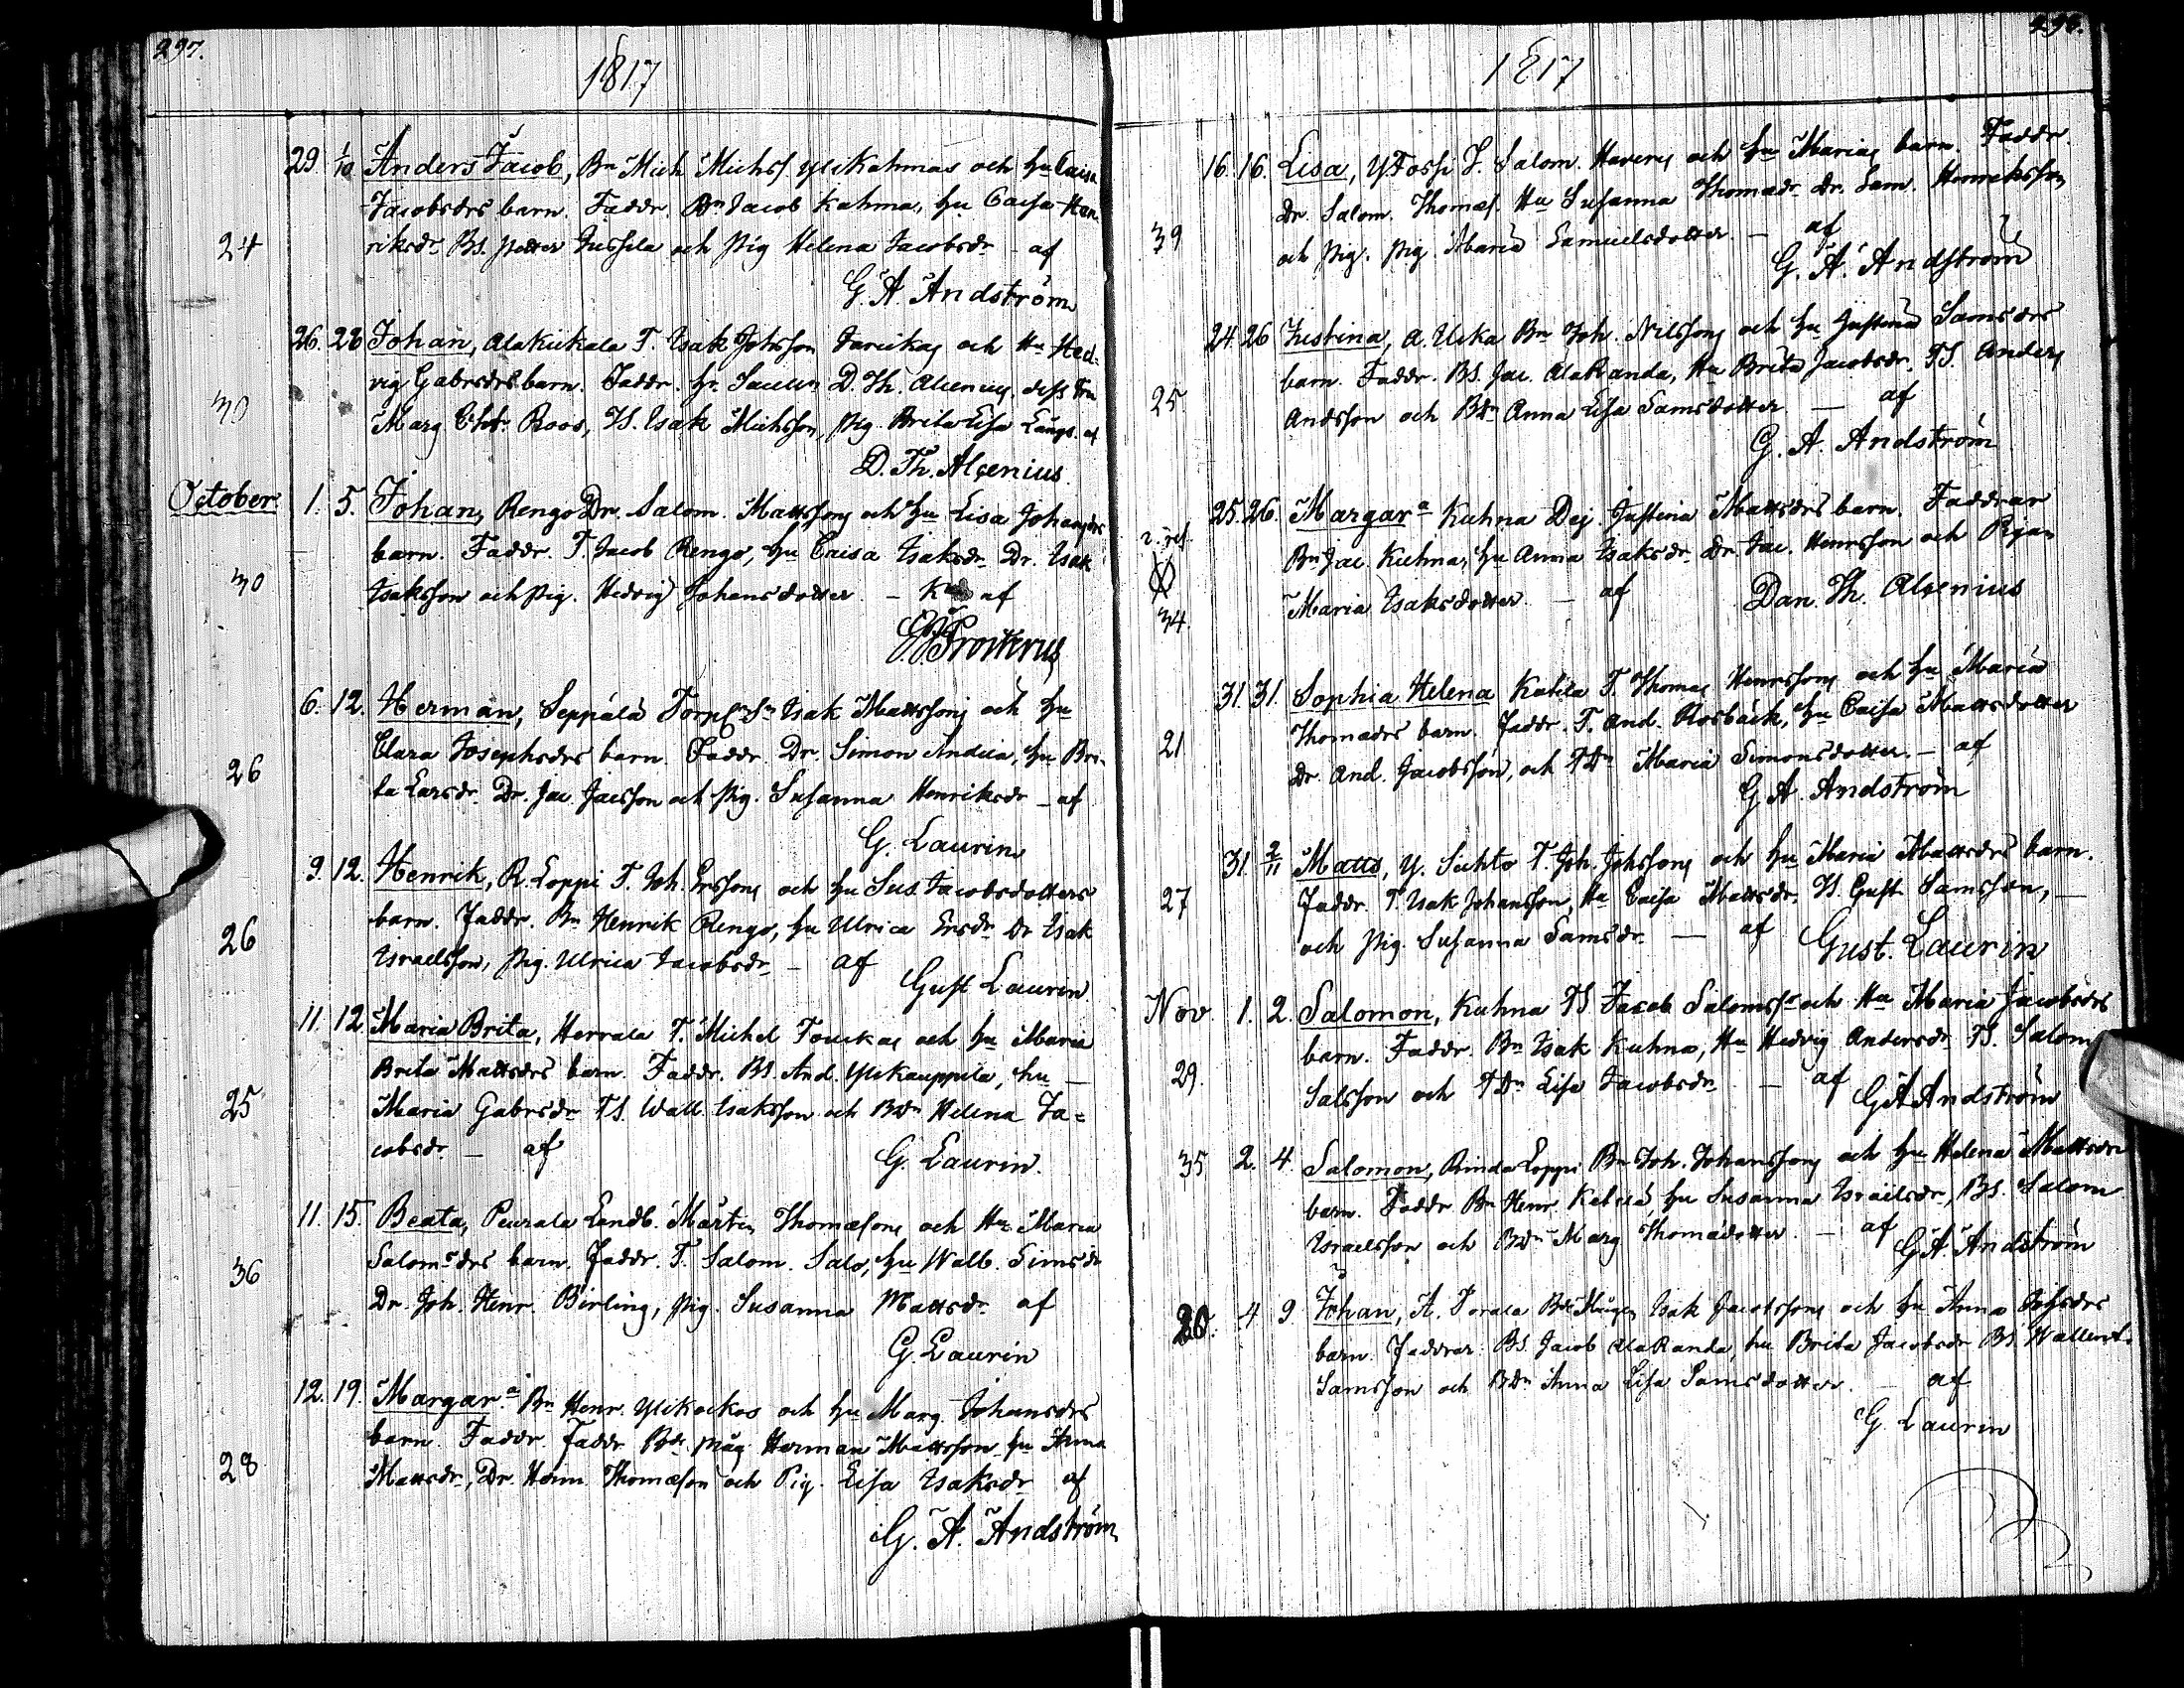 297.
1817
29 1/10 Anders Jacob, Bn Mich Michss. Ylikahmas och hu Caisa
Jacobsdrs barn. Faddr. Bn Jacob Kahma, hu Caisa Hen
24 riksdr Bs. Petter Jussila och pig Helena Jacobsdr - af
G. A. Andström
26. 28 Johan, Alakiikala T. Isak Johsson och Hu Hed-
vig Gabrsdrs barn. Faddr. hr. D. Th. Alcenius, dess fru
30 Marg Chr. Roos, Isak Michsson, pig. Brita Lisa af
D. Th. Alcenius.
October 1. 5. Johan, Rengo Dr. Salom. Mattssons och hu Lisa Johansdrs
barn. Faddr. T. Jacob Rengo, hu Caisa Isaksdr Dr. Isak
30 Isaksson och pig. Hedvig Johansdotter. - af
6. 12. Herman, Seppälä Isak Mattssons och hu
Clara Josephsdrs barn. Faddr. Dr. Simon Andila, hu Bri-
26 ta Larsdr. Dr. Jac. Jacsson och pig. Susanna Henriksdr - af
G. Laurin
9. 12. Henrik, R. Loppi T. Joh. Erssons och hu Sus. Jacobsdotters
barn. Faddr. Bn Henrik Rengo, hu Ulrica Ersdr Dr Isak
26 Israelsson, pig. Ulrica Jacobsdr - af
Gust Laurin
11. 12. Maria Brita, Herrala T. Michel Touckas och hu Maria
Brita Mattsdrs barn. Faddr. Bs. And. Ylikauppila, hu -
25 Maria Gabrsdr TS. Wall. Isaksson och Bdr Helena Ja=
cobsdr. - af
G. Laurin.
11. 15. Beata, Peurala Landb. Mårtin Thomæsons och Hu Maria
Salomsdrs barn. Faddr. T. Salom. Salo, hu Walb. Simsdr
36 Dr. Joh. Henr. Birling, pig. Susanna Mattsdr. af
G. Laurin
12. 19. Margar a Bn Henr. Ylikockos och hu Marg. Johansdrs
barn. Faddr. Faddr. Bde. måg Herman Mattsson hu Anna
28 Mattsdr, Dr. Herm. Thomæson och Pig. Lisa Isaksdr af
G. A. Andström
298.
1817
16. 16. Lisa, YFossi S. Salom. Haveris och hu Marias barn. Faddr.
Dr. Salom. Thomæs. Hu Susanna Thomædr. Dr. Sam. Henriksson
39 och pig. pig. Maria Samuelsdotter. - af
G. A. Andström
24. 26 Justina, A. Uska Bn Joh. Nilssons och hu Justina Samsdrs
barn. Faddr. BS. Jac. AlaRanda, Hu Brita Jacobsdr. TS. Anders
25 Andsson och BDr Anna Lisa Samsdotter - af
G. A. Andström
25. 26. Margar a Kuhna Dej. Justina Mattsdrs barn. Faddrar
Bn Jac. Kuhna, hu Anna Isaksdr Dr Jac. Henrsson och Pigan
34. Maria Isaksdotter - af
Dan. Th. Alcenius
31. 31. Sophia Helena Katila T. Thomas Henrssons och hu Maria
Thomædrs barn. Faddr. T. And. Rosbäck, hu Caisa Mattsdotter
21 Dr. And. Jacobsson, och TDr Maria Simonsdotter. - af
G A. Andström
31. 2/11 Matts, Y. Suhto T. Joh. Johssons och hu Maria Mattsdrs barn.
27 Faddr. T. Isak Johansson, Hu Caisa Mattsdr. Gust. Samsson, -
och pig. Susanna Samsdr. - af
Gust. Laurin
Nov 1. 2. Salomon, Kuhna TS Jacob Salomss. och Hu Maria Jacobsdrs
barn. Faddr. Bn Isak Kuhna, Hu Hedvig Andersdr TS. Salom
29. Salsson och TDr Lisa Jacobsdr - af
G A Andström
35 2. 4. Salomon, Rinda Loppi Bn Joh. Johanssons och hu Helena Mattsdrs
barn. Faddr. Bn Henr. hu Susanna Israelsdr, BS. Salom
Israelsson och Bdr Marg Thomædotter. - af
G A. Andström
20. 4 9 Johan, A. Torala Bde Mågen Isak Jacobssons och hu Anna
barn. Faddrar BS. Jacob AlaRanda, hu Brita Jacobsdr BS.
Samsson och BDr Anna Lisa Samsdotter. - af
G Laurin